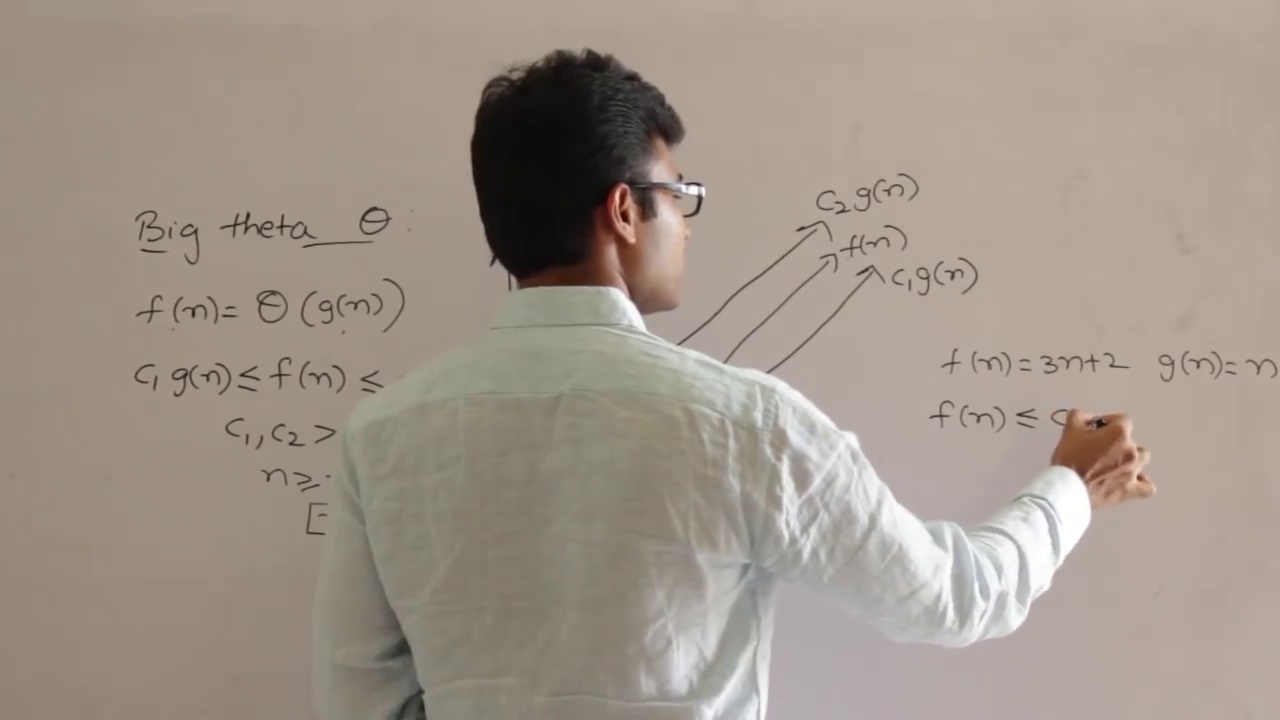 Big theta Θ:
f(n) = Θ(g(n))
c₁ g(n) ≤ f(n) ≤
c₁, c₂ >
n ≥
[
c₂ g(n)
f(n)
c₁ g(n)
f(n) = 3n+2 g(n) = n
f(n) ≤ c